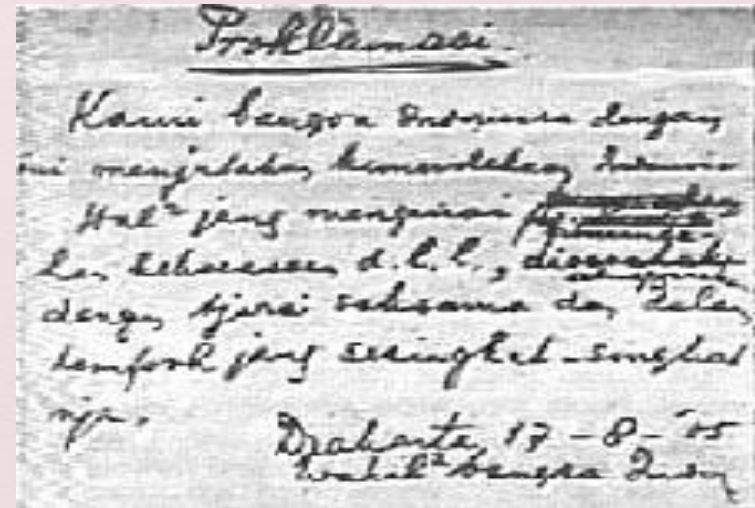 Proklamasi
Kami bangsa Indonesia dengan
ini menjatakan kemerdekaan Indonesia
Hal² jang mengenai
d.l.l., diusahakan
dengan tjara saksama dan dalam
tempoh jang sesingkat-singkat
nja.
Djakarta, 17 - 8 - '05
Wakil² bangsa Indon